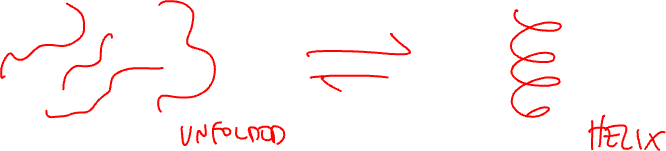 UNFOLDED
HELIX